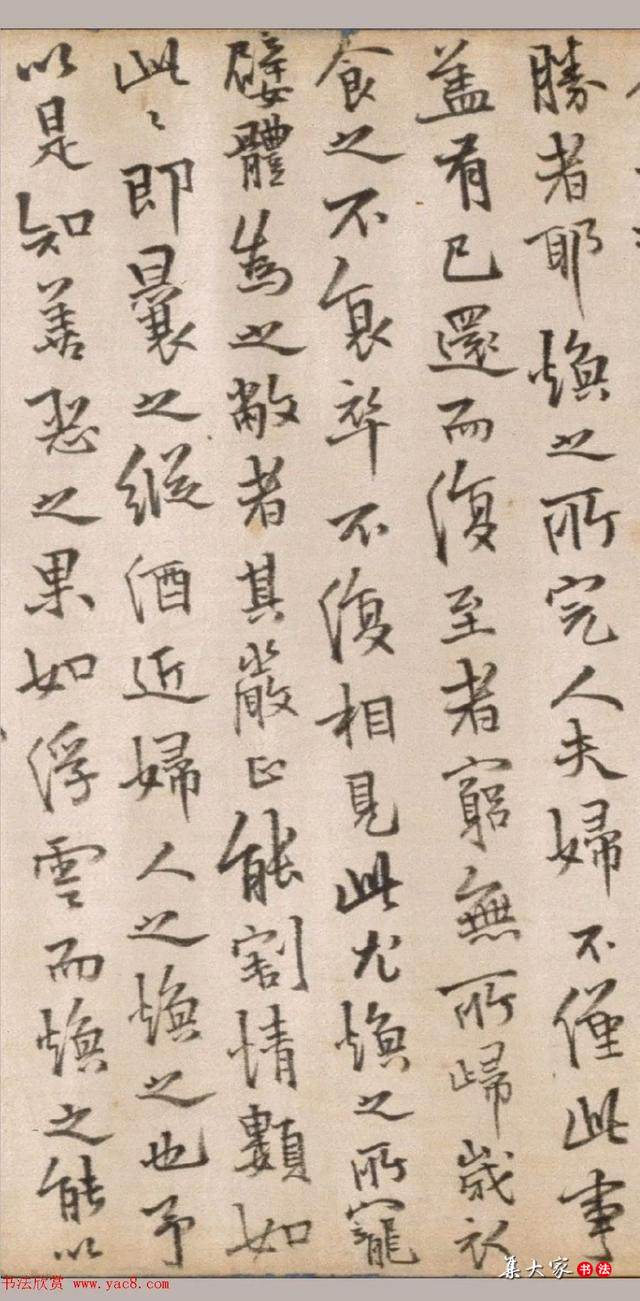 勝者耶煥之所完人夫婦不僅此事
盖有已還而復至者窮無所歸歲衣
食之不衰卒不復相見此尤煥之所寵
嬖體為之敝者其嚴正能割情類如
此〻即曩之縱酒近婦人之煥之也予
以是知善惡之果如浮雲而煥之能以
书法欣赏 www.yac8.com
集大家 书法